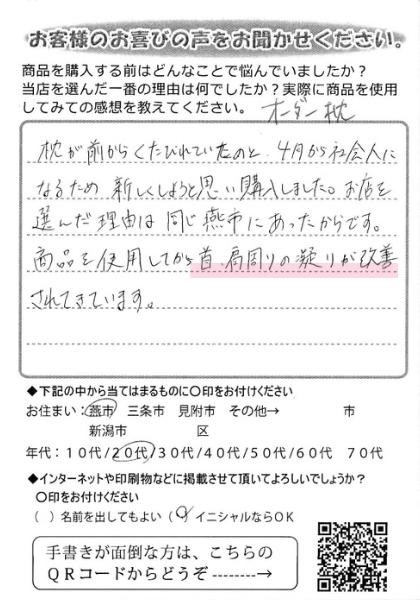 お客様のお喜びの声をお聞かせください。
商品を購入する前はどんなことで悩んでいましたか？
当店を選んだ一番の理由は何でしたか？実際に商品を使用
してみての感想を教えてください。 オーダー枕
枕が前からくたびれていたのと、4月から社会人に
なるため 新しくしようと思い購入しました。お店を
選んだ理由は 同じ燕市にあったからです。
商品を使用してから首、肩周りの凝りが改善
されてきています。
◆下記の中から当てはまるものに〇印をお付けください
お住まい：燕市 三条市 見附市 その他→ 市
新潟市 区
年代：１０代/２０代/３０代/４０代/５０代/６０代 ７０代
◆インターネットや印刷物などに掲載させて頂いてよろしいでしょうか？
〇印をお付けください
（ ）名前を出してもよい（〇）イニシャルならＯＫ
手書きが面倒な方は、こちらの
ＱＲコードからどうぞ--------→